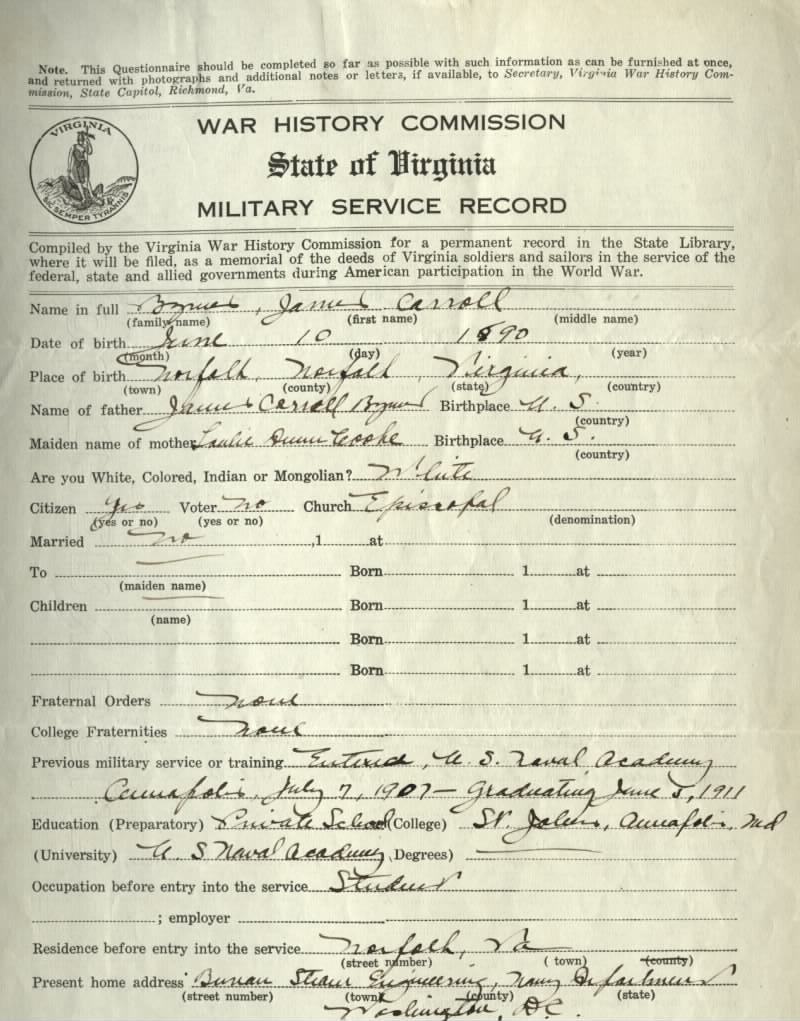 Note. This Questionnaire should be completed so far as possible with such information as can be furnished at once,
and returned with photographs and additional notes or letters, if available, to Secretary, Virginia War History Com-
mission, State Capitol, Richmond, Va.
VIRGINIA
SIC SEMPER TYRANNIS
WAR HISTORY COMMISSION
State of Virginia
MILITARY SERVICE RECORD
Compiled by the Virginia War History Commission for a permanent record in the State Library,
where it will be filed, as a memorial of the deeds of Virginia soldiers and sailors in the service of the
federal, state and allied governments during American participation in the World War.
Name in full Byrnes, James Carroll
(family name) (first name) (middle name)
Date of birth June 10 1890
(month) (day) (year)
Place of birth Norfolk, Norfolk, Virginia,
(town) (county) (state) (country)
Name of father James Carroll Byrnes Birthplace U. S.
(country)
Maiden name of mother Dunn Cooke Birthplace U. S.
(country)
Are you White, Colored, Indian or Mongolian? White
Citizen Yes Voter No Church Episcopal
(yes or no) (yes or no) (denomination)
Married No ,1 at
To Born 1 at
(maiden name)
Children Born 1 at
(name)
Born 1 at
Born 1 at
Fraternal Orders None
College Fraternities None
Previous military service or training Entered, U. S. Naval Academy
Annapolis, July 7, 1907 — Graduating June 5, 1911
Education (Preparatory) Private School (College) St. Johns, Annapolis, Md
(University) U. S Naval Academy (Degrees) —
Occupation before entry into the service Student
; employer
Residence before entry into the service Norfolk, Va
(street number) (town) (county)
Present home address Bureau Steam Engineering, Navy Department
(street number) (town) (county) (state)
Washington, D.C.